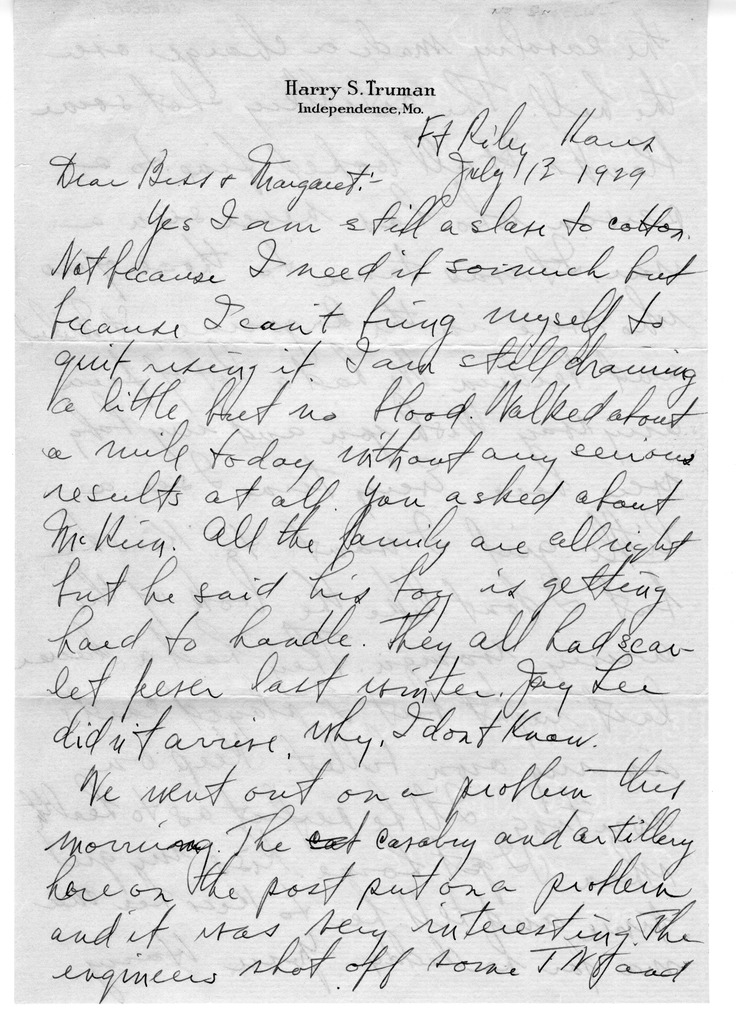 Harry S. Truman
Independence, Mo.
Ft Riley Kans
July 12 1929
Dear Bess & Margaret:-
Yes I am still a slave to cotton.
Not because I need it so much but
because I can't bring myself to
quit using it. I am still draining
a little but no blood. Walked about
a mile today without any serious
results at all. You asked about
McKim. All the family are all right
but he said his boy is getting
hard to handle. They all had scar-
let fever last winter. Jay Lee
didn't arrive, why, I don't know.
We went out on a problem this
morning. The cavalry and artillery
here on the post put on a problem
and it was very interesting. The
engineers shot off some TNT and